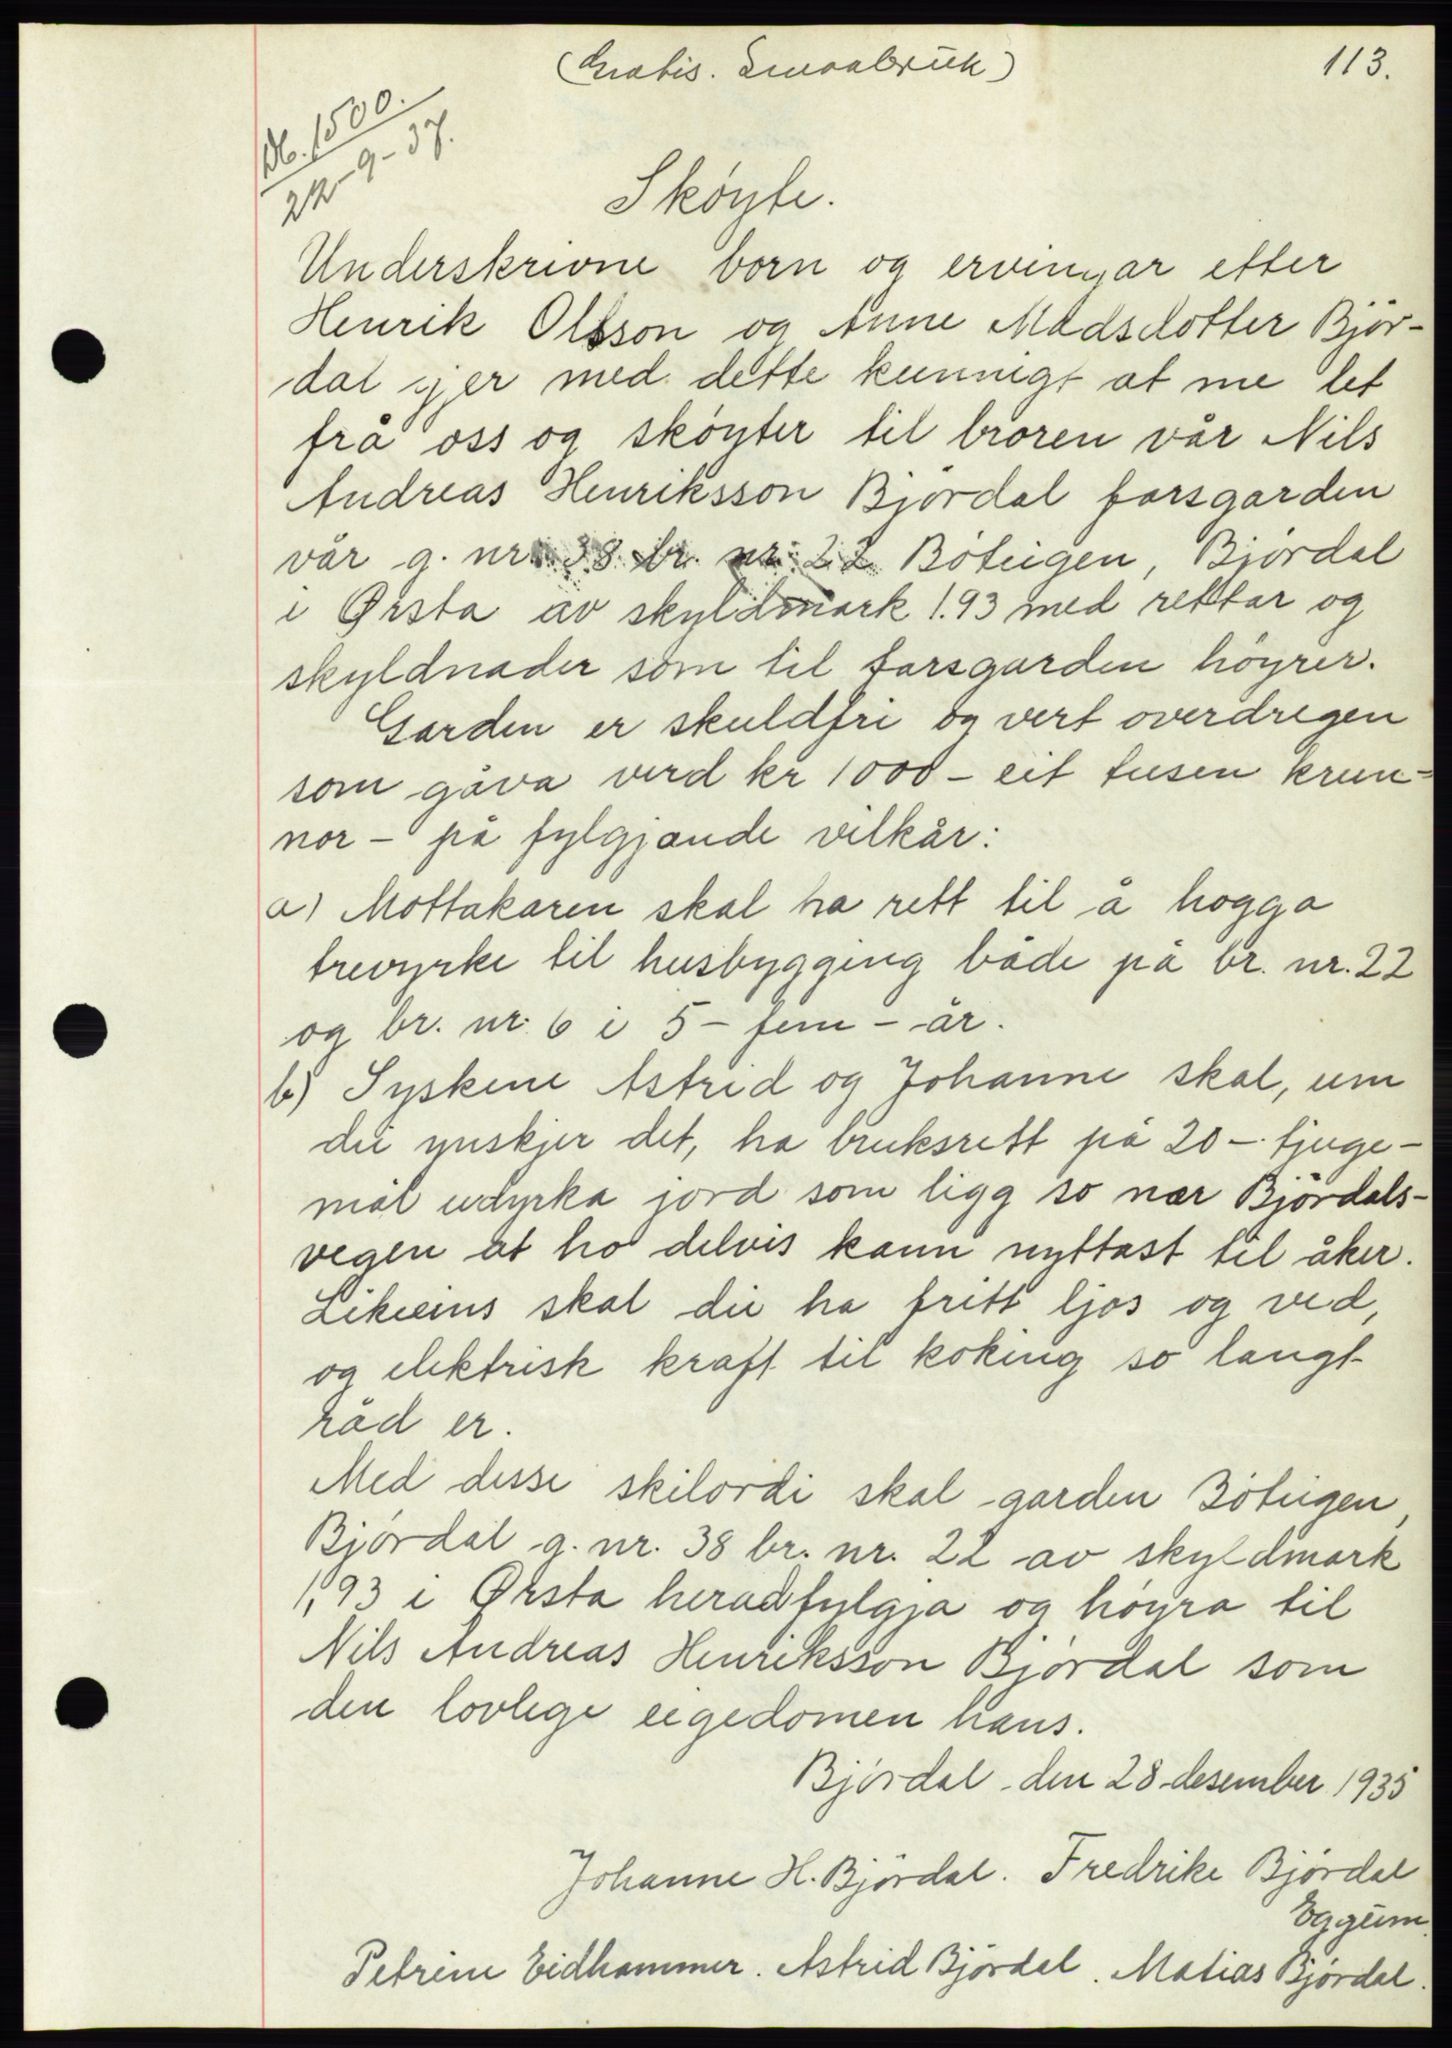 (Gratis. Smaabruk)
113.
Db. 1500.
22-9-37.
Skøyte.
Underskrivne born og ervingar etter
Henrik Olsson og Anne Madsdotter Bjør-
dal gjer med dette kunnigt at me let
frå oss og skøyter til broren vår Nils
Andreas Henriksson Bjørdal farsgarden
vår g. nr. 38 br. nr. 22 Bøteigen, Bjørdal
i Ørsta av skyldmark 1.93 med rettar og
skyldnader som til farsgarden høyrer.
Garden er skuldfri og vert overdregen
som gåva verd kr 1000 - eit tusen krun=
nor - på fylgjande vilkår:
a) Mottakaren skal ha rett til å hogga
trevyrke til husbygging både på br. nr. 22
og br. nr. 6 i 5 - fem - år.
b) Syskene Astrid og Johanne skal, um
dei ynskjer det, ha bruksrett på 20 - tjuge -
mål udyrka jord som ligg so nær Bjørdals-
vegen at ho delvis kann nyttast til åker.
Likeeins skal dei ha fritt ljos og ved,
og elektrisk kraft til koking so langt
råd er.
Med desse skilordi skal garden Bøteigen,
Bjørdal g. nr. 38 br. nr. 22 av skyldmark
1,93 i Ørsta herad fylgja og høyra til
Nils Andreas Henriksson Bjørdal som
den lovlege eigedomen hans.
Bjørdal den 28 desember 1935
Johanne H. Bjørdal. Fredrike Bjørdal
Eggum.
Petrine Eidhammer. Astrid Bjørdal. Matias Bjørdal.